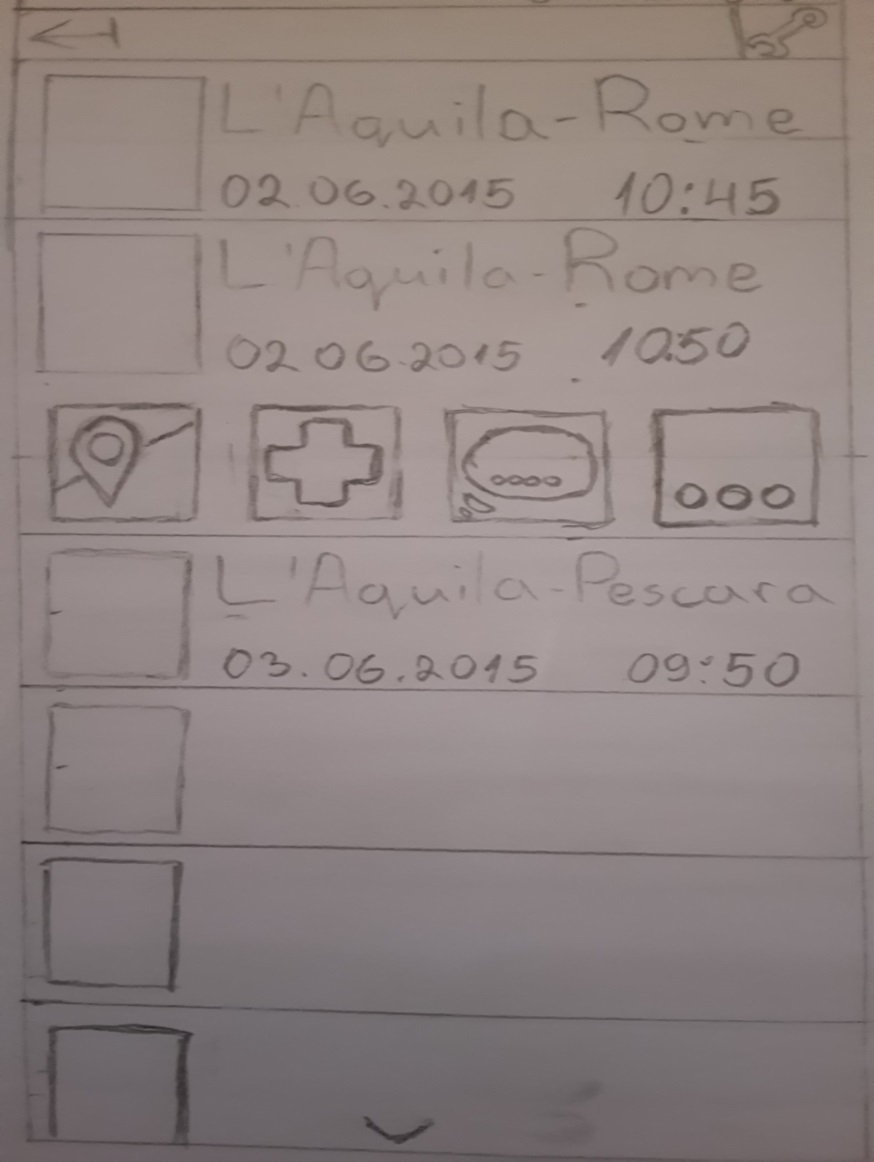 L'Aquila-Rome
02.06.2015 10:45
L'Aquila-Rome
02 06.2015 10:50
L'Aquila-Pescara
03.06.2015 09:50